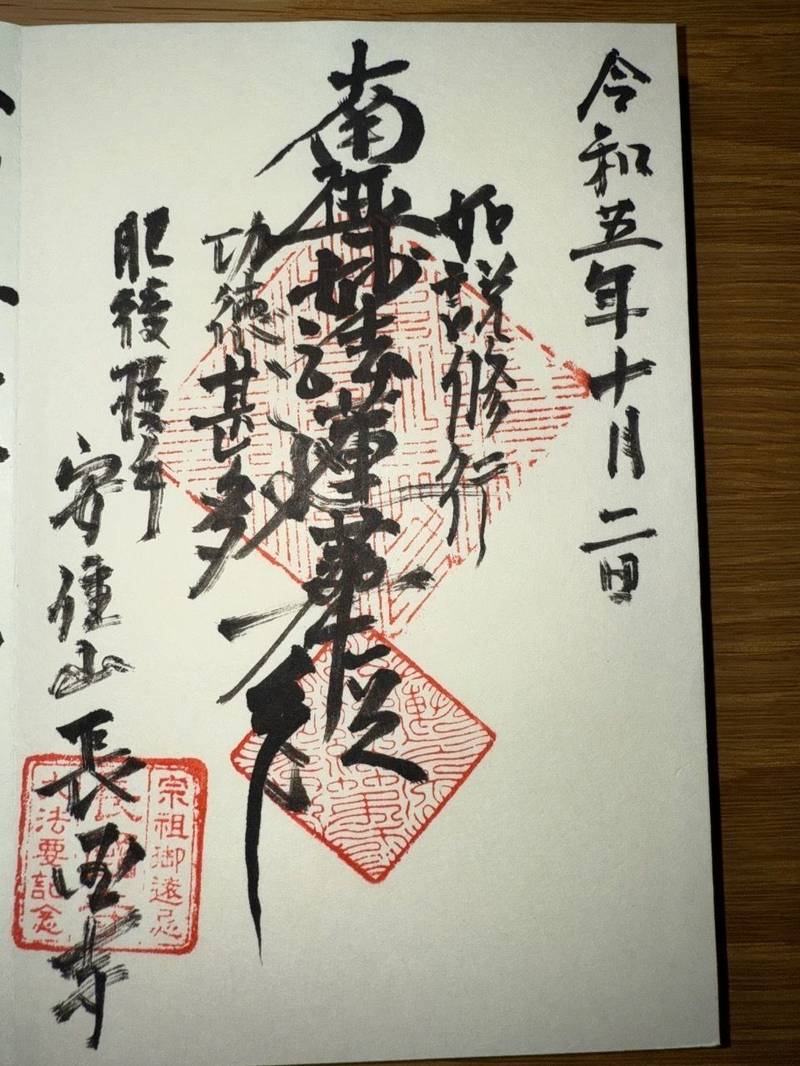 令和五年十月二日
如説修行
南無妙法蓮華経
功徳甚多
肥後横手
安住山 長国寺
宗祖御遠忌
大法要記念